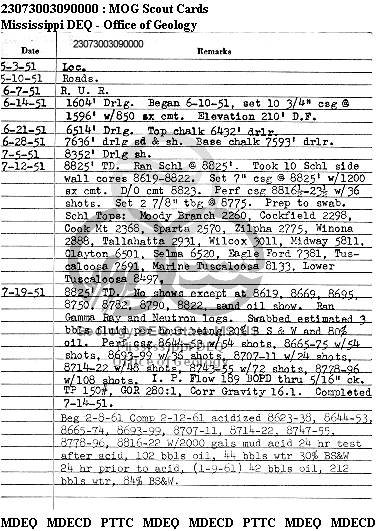 23073003090000 : MOG Scout Cards
Mississippi DEQ - Office of Geology
Date 23073003090000 Remarks
5-3-51 Loc.
5-10-51 Roads.
6-7-51 R. U. R.
6-14-51 1604' Drlg. Began 6-10-51, set 10 3/4" csg @
1596' w/850 sx cmt. Elevation 210' D.F.
6-21-51 6514' Drlg. Top chalk 6432' drlr.
6-28-51 7636' drlg sd & sh. Base chalk 7593' drlr.
7-5-51 8352' Drlg sh.
7-12-51 8825' TD. Ran Schl @ 8825'. Took 10 Schl side
wall cores 8619-8822. Set 7" csg @ 8825' W/1200
sx cmt. D/O cmt 8823. Perf csg 8816½-23½ w/36
shots. Set 2 7/8" tbg @ 8775. Prep to swab.
Schl Tops: Moody Branch 2260, Cockfield 2298,
Cook Mt 2368, Sparta 2570, Zilpha 2775, Winona
2888, Tallahatta 2931, Wilcox 3011, Midway 5811,
Clayton 6501, Selma 6520, Eagle Ford 7381, Tus-
caloosa 7691, Marine Tuscaloosa 8133, Lower
Tuscaloosa 8497.
7-19-51 8825' TD. No shows except at 8619, 8669, 8695,
8750, 8782, 8790, & 8822, sand oil show. Ran
Gamma Ray and Neutron logs. Swabbed estimated 3
bbls fluid per hour being 20% B S & W and 80%
oil. Perf csg 8644-53 w/54 shots, 8665-75 w/54
shots, 8693-99 w/36 shots, 8707-11 w/24 shots,
8714-22 w/48 shots, 8743-55 w/72 shots, 8778-96
w/108 shots. I. P. Flow 189 BOPD thru 5/16" ck.
TP 150#, GOR 280:1, Corr Gravity 16.1. Completed
7-14-51.
Beg 2-8-61 Comp 2-12-61 acidized 8623-38, 8644-53,
8665-74, 8693-99, 8707-11, 8714-22, 8747-55,
8778-96, 8816-22 W/2000 gals mud acid 24 hr test
after acid, 102 bbls oil, 44 bbls wtr 30% BS&W
24 hr prior to acid, (1-9-61) 42 bbls oil, 212
bbls wtr, 84% BS&W.
MDEQ MDECD PTTC MDEQ MDECD PTTC MDEQ MDECD